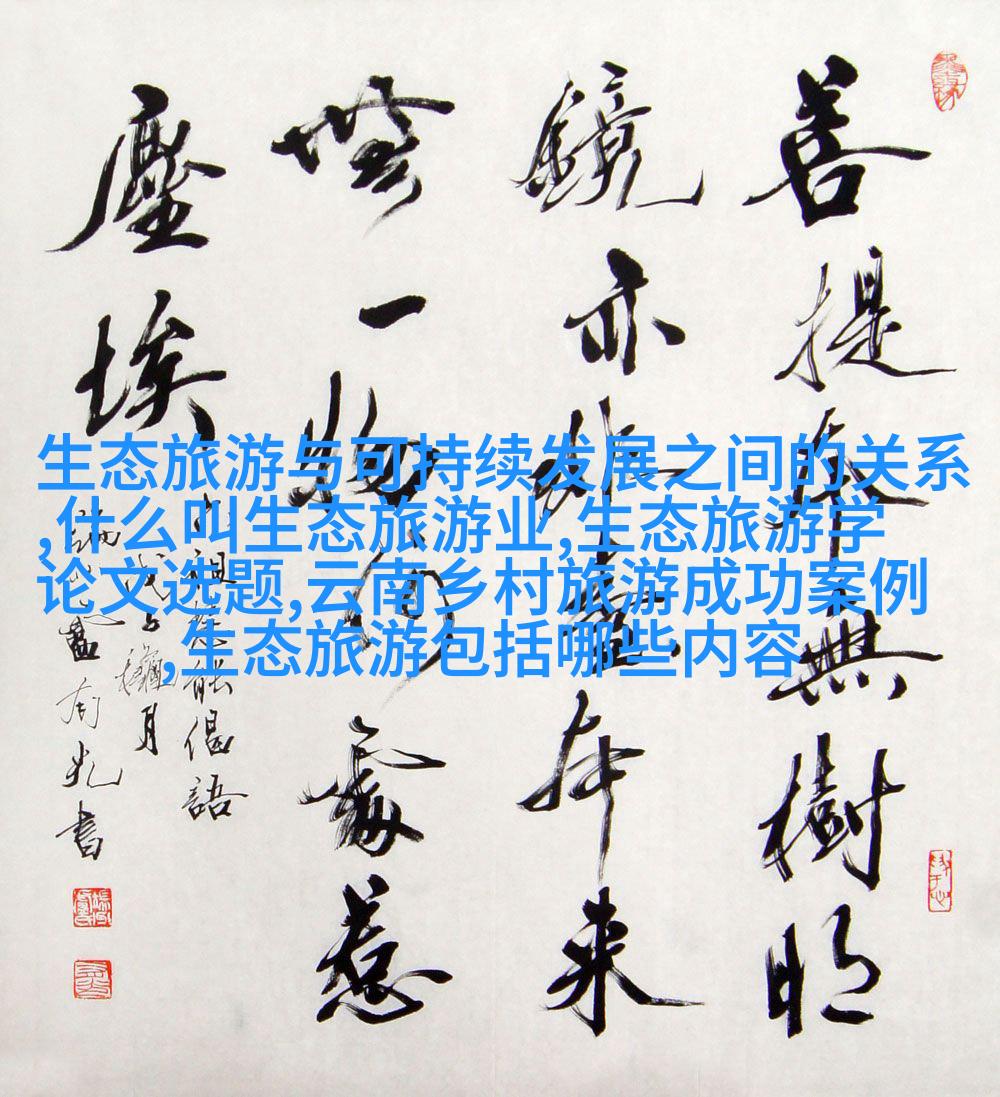 生态旅游与可持续发展之间的关系
,什么叫生态旅游业,生态旅游学
论文选题,云南乡村旅游成功案例
,生态旅游包括哪些内容
菩提本無樹明
鏡亦非臺本來
無一物何處惹
塵埃
六祖慧能偈語
月
書